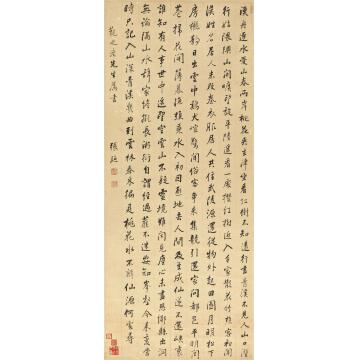 漁舟逐水愛山春兩岸桃花夾古津坐看紅樹不知遠行盡青溪不見人山口潛
行始隈隩山開曠望旋平陸遙看一處攢紅樹近入千家散花竹樵客初傳
漢姓名居人未改秦衣服居人共住武陵源還從物外起田園月明松下
房櫳靜日出雲中雞犬喧驚聞俗客爭來集競引還家問都邑平明閭
巷掃花開薄暮漁樵乘水入初因避地去人間及至成仙遂不還峽裏
誰知有人事世中遙望空雲山不疑靈境難聞見塵心未盡思鄉縣出洞
無論隔山水辭家終擬長游衍自謂經過舊不迷安知峰壑今來變當
時只記入山深青溪幾曲到雲林春來徧是桃花水不辨仙源何處尋
先生屬書 張